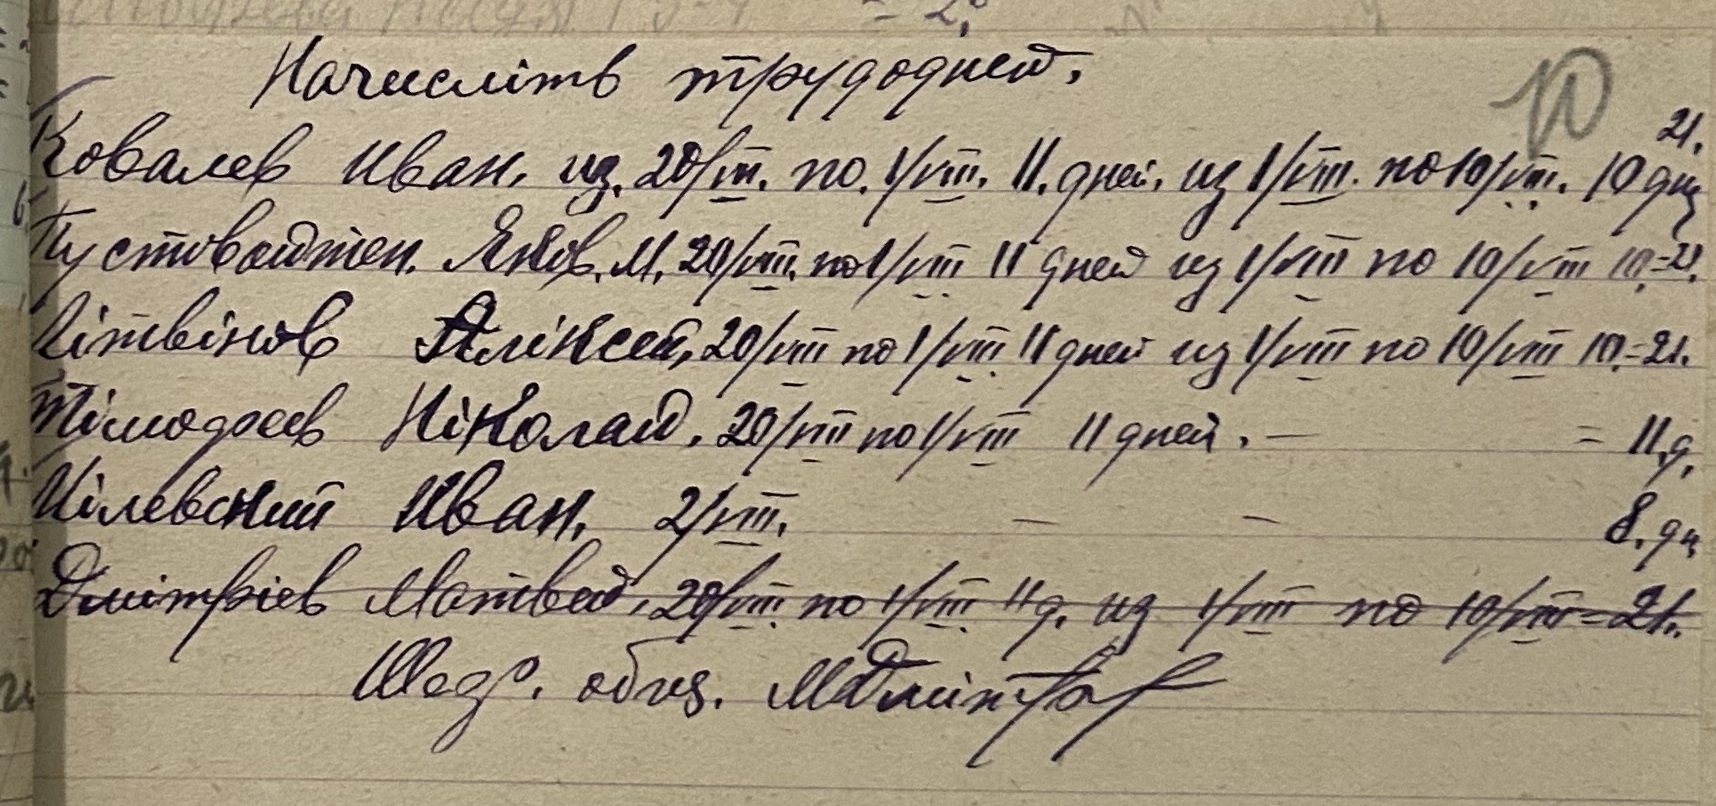 Начислiть трудодней.
10
21.
Ковалев Иван. из. 20/VII. по. 1/VIII. 11. дней. из 1/VIII. по 10/VIII. 10 дн
Пустовойтен. Яков. М. 20/VII. по 1/VIII 11 дней из 1/VIII по 10/VIII 10.=21.
Лiтвiнов Алiксей, 20/VII по 1/VIII 11 дней из 1/VIII по 10/VIII 10.=21.
Тiмофеев Нiколай. 20/VII по 1/VIII 11 дней. — = 11.д.
Мiлевский Иван. 2/VIII. — — 8. дн
Дмiтрiев Матвей, 20/VII по 1/VIII 11 д. из 1/VIII по 10/VIII = 21.